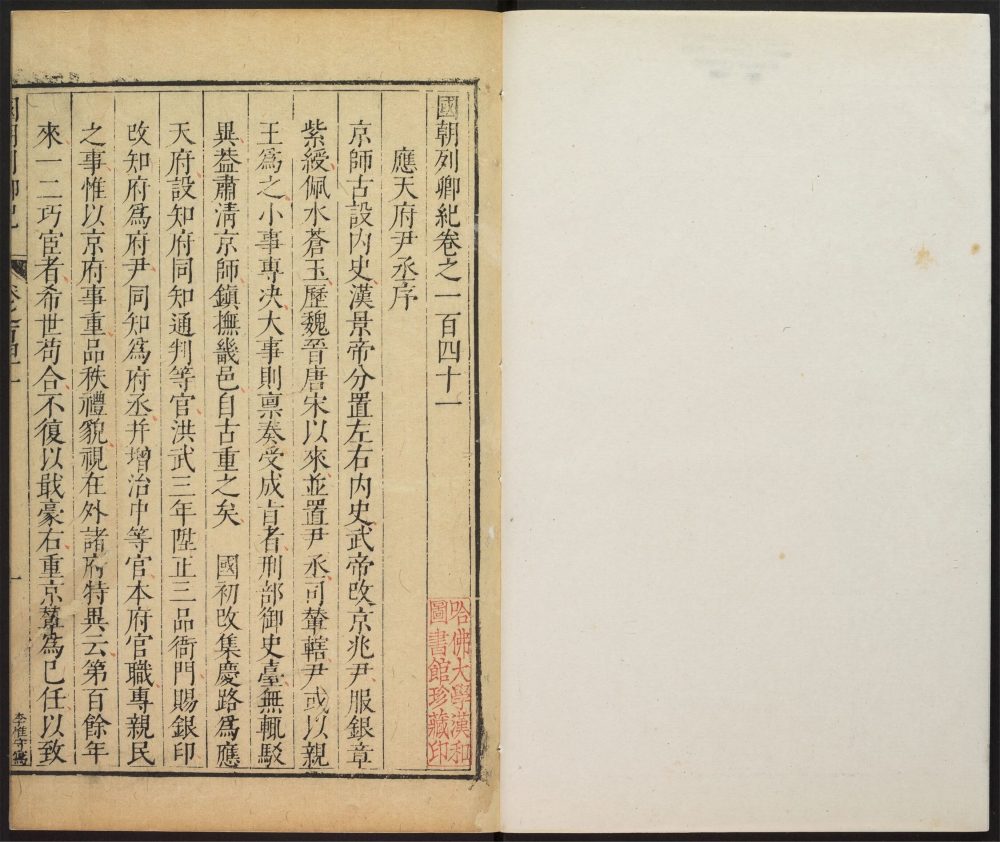 國朝列卿紀卷之一百四十一
應天府尹丞序
京師古設內史漢景帝分置左右內史武帝改京兆尹服銀章
紫綬佩水蒼玉歷魏晉唐宋以來並置尹丞司輦轄尹或以親
王爲之小事專決大事則禀奏受成旨者刑部御史臺無輒駁
異葢肅清京師鎮撫畿邑自古重之矣 國初改集慶路爲應
天府設知府同知通判等官洪武三年陞正三品衙門賜銀印
改知府爲府尹同知爲府丞并增治中等官本府官職專親民
之事惟以京府事重品秩禮貌視在外諸府特異云第百餘年
來一二巧宦者希世苟合不復以戢豪右重京輦爲已任以致
國朝列卿紀
一
李惟守寫
哈佛大學漢和
圖書館珍藏印